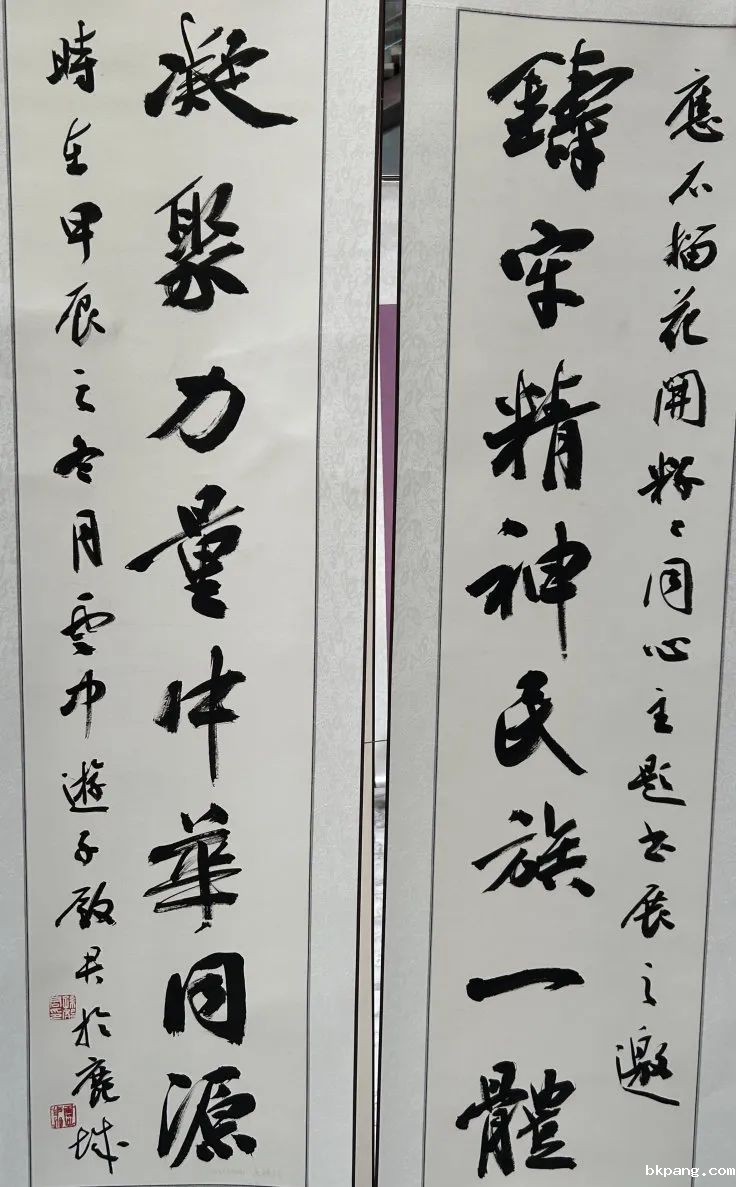 應石榴花開籽〻同心主題書展之邀
鑄牢精神民族一體
凝聚力量中華同源
時在甲辰之冬月雲中遊子啟君於鹿城
bkpang.com